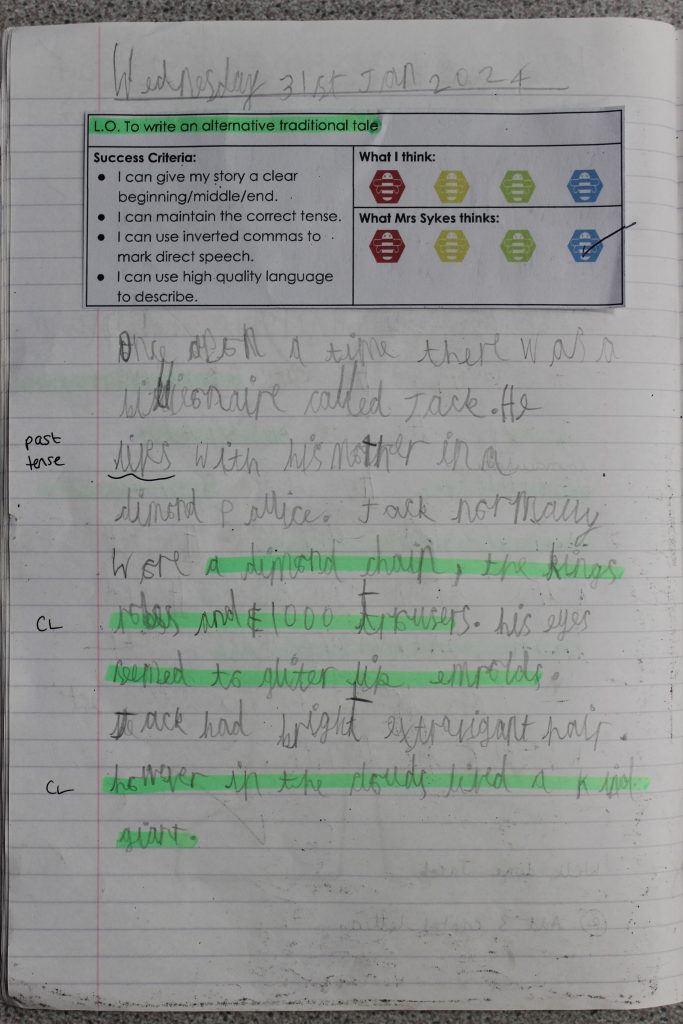 Wednesday 31st Jan 2024
L.O. To write an alternative traditional tale
Success Criteria:
• I can give my story a clear
beginning/middle/end.
• I can maintain the correct tense.
• I can use inverted commas to
mark direct speech.
• I can use high quality language
to describe.
What I think:
What Mrs Sykes thinks:
Once a time there was a
billionaire called Jack. He
past
tense
lives with his mother in a
dimond pallice. Jack normally
wore a dimond chain, the kings
CL
robes and £1000 trousers. his eyes
seemed to gliter like emrolds.
Jack had bright extravigant hair.
CL
however in the clouds lived a kind
giant.